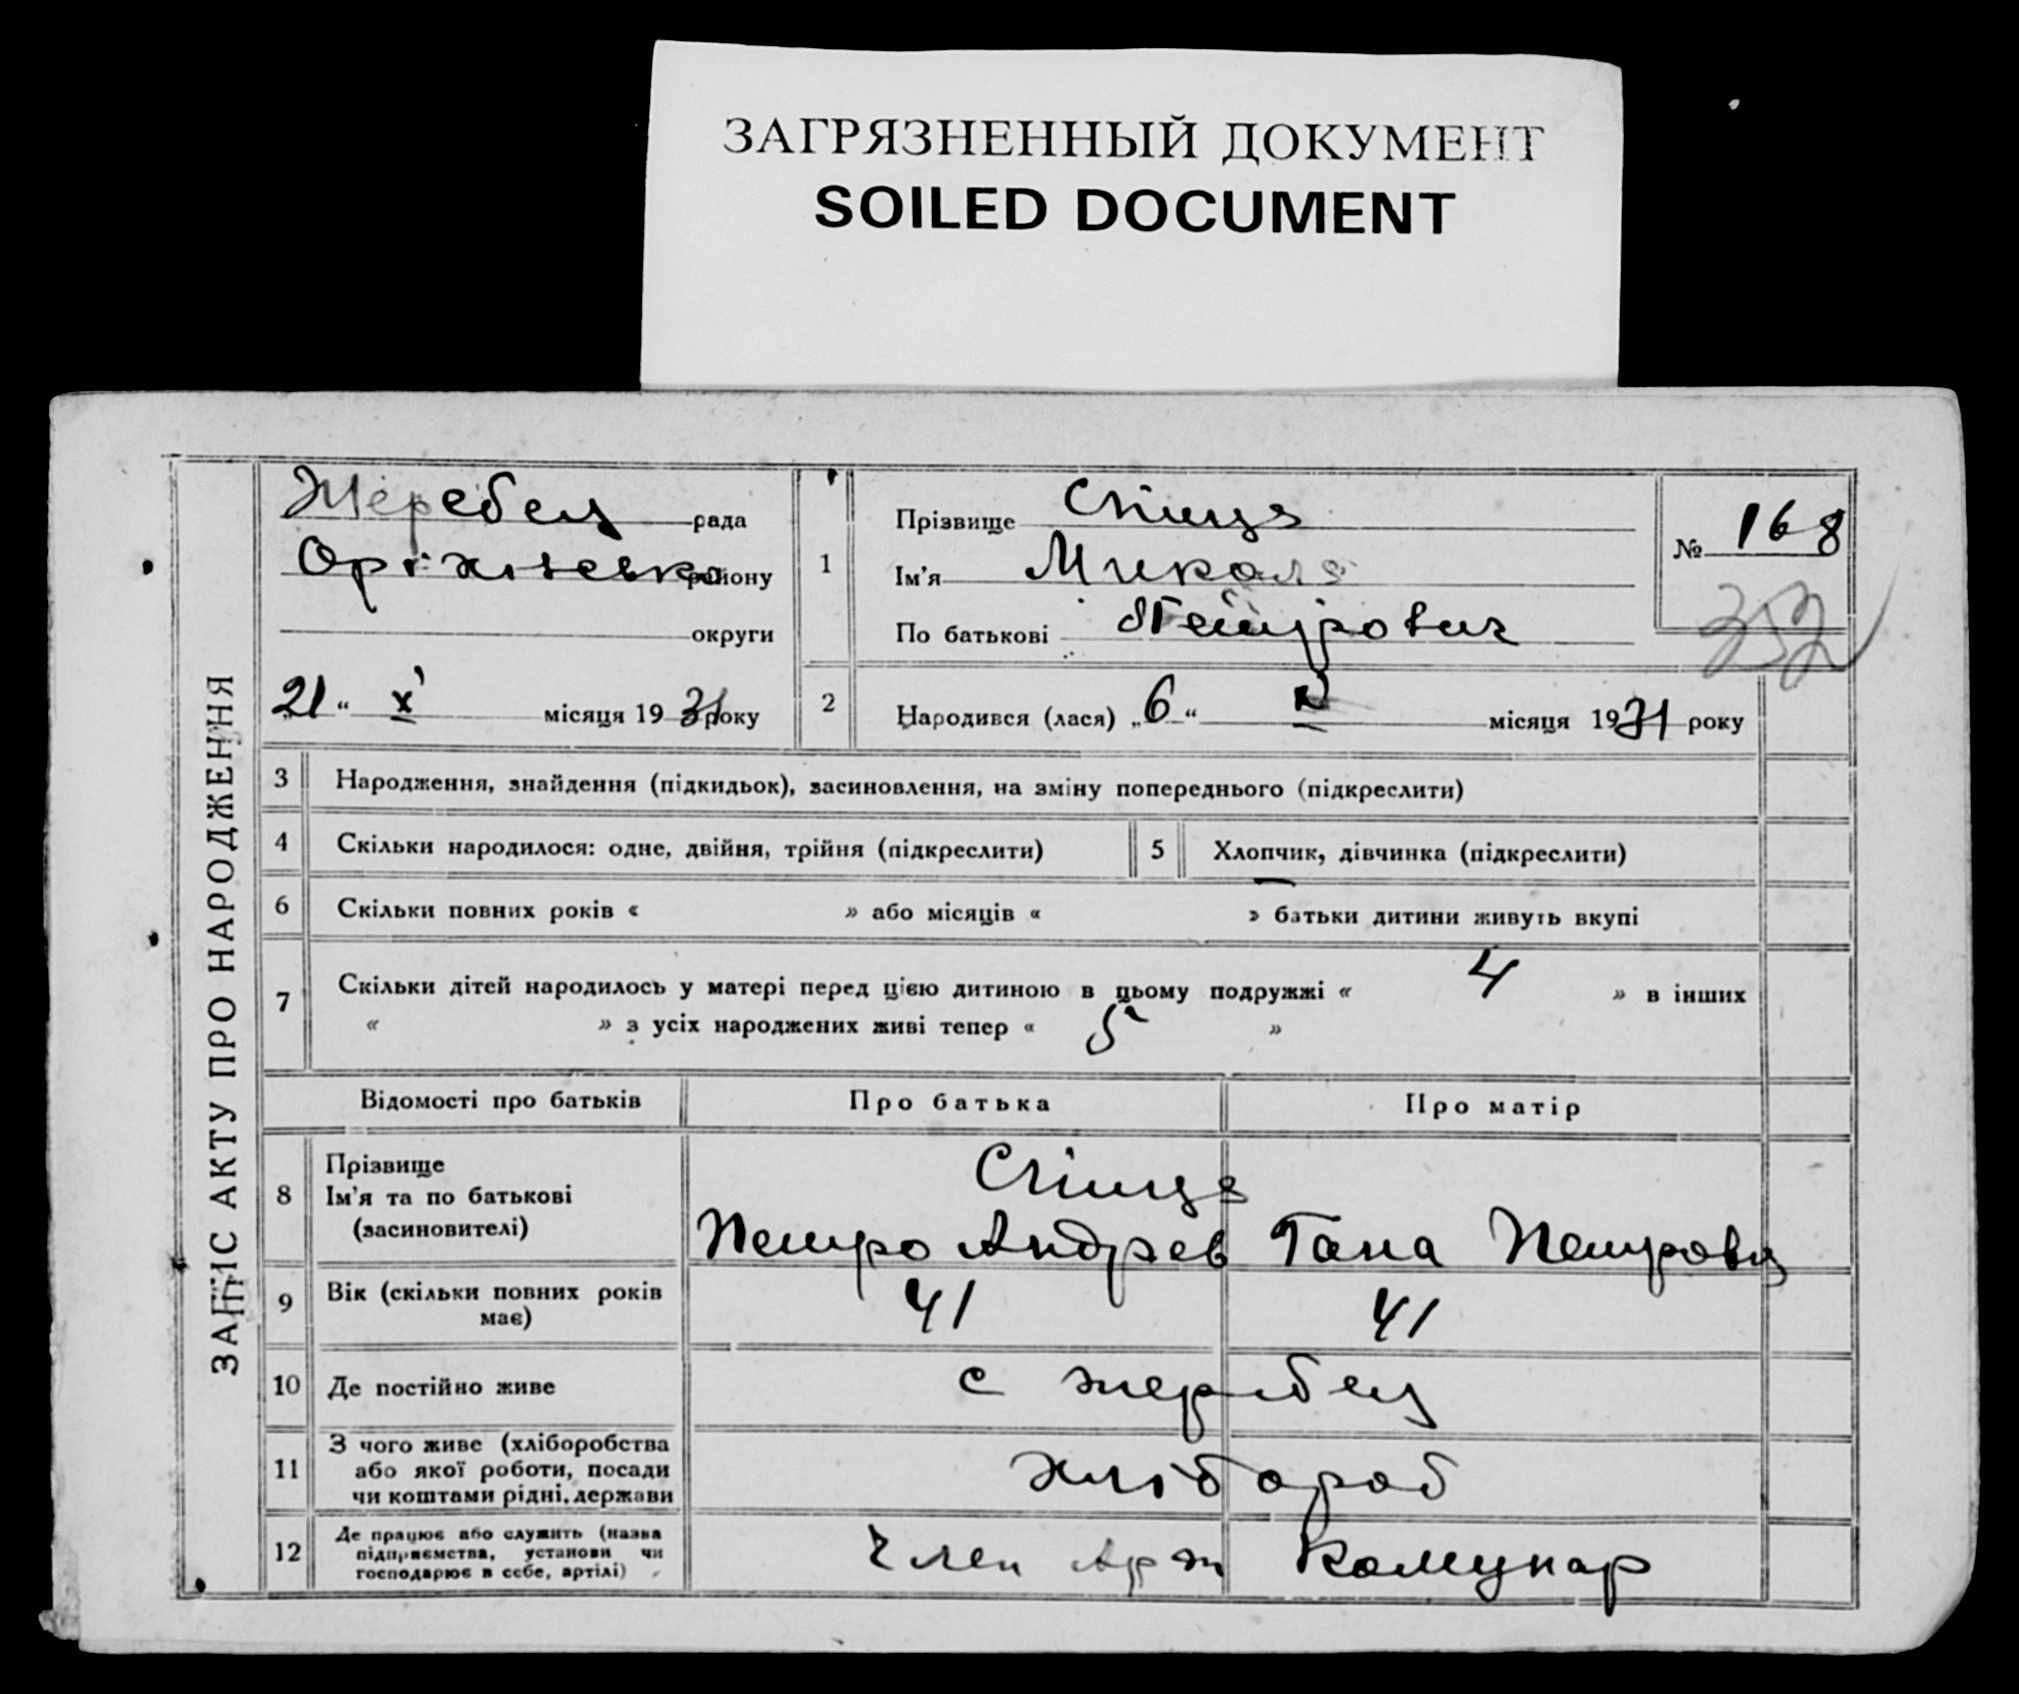 ЗАГРЯЗНЕННЫЙ ДОКУМЕНТ
SOILED DOCUMENT
ЗАПИС АКТУ ПРО НАРОДЖЕННЯ
Жеребец рада
району
округи
21 " X місяця 1931 року
1
Прізвище
Ім'я Микола
По батькові Петрович
№ 168
352
2
Народився (лася) „6“ місяця 1931 року
3 Народження, знайдення (підкидьок), засиновлення, на зміну попереднього (підкреслити)
4 Скільки народилося: одне, двійня, трійня (підкреслити) 5 Хлопчик, дівчинка (підкреслити)
6 Скільки повних років « » або місяців « » батьки дитини живуть вкупі
7 Скільки дітей народилось у матері перед цією дитиною в цьому подружжі « 4 » в інших
« » з усіх народжених живі тепер « 5 »
Відомості про батьків Про батька Про матір
8 Прізвище
Ім'я та по батькові
(засиновителі)
Петро Андрев Гана Петровн
9 Вік (скільки повних років
має)
41 41
10 Де постійно живе с жеребец
11 З чого живе (хліборобства
або якої роботи, посади
чи коштами рідні, держави
хлібороб
12 Де працює або служить (назва
підприємства, установи чи
господарює в себе, артілі)
Член Арт Комунар